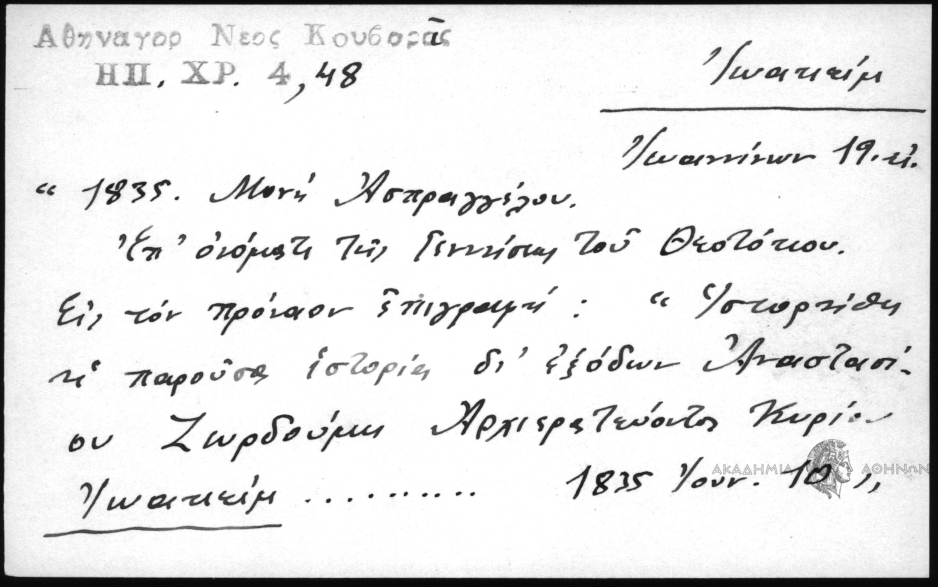 Αθηναγορ Νεος Κουβαρᾶς
ΗΠ. ΧΡ. 4, 48
Ἰωακεὶμ
Ἰωαννίνων 19. αἰ.
“ 1835. Μονὴ Ἀσπραγγέλου.
Ἐπ’ ὀνόματι τῆς Γεννήσεως τοῦ Θεοτόκου.
Εἰς τὸν πρόναον ἐπιγραφή : “ Ἱστορήθη
ἡ παροῦσα ἱστορία δι’ ἐξόδων Ἀναστασί-
ου Ζωρδούμη Ἀρχιερατεύοντος Κυρίου
Ἰωακεὶμ .......... 1835 Ἰουν. 10 ”
ΑΚΑΔΗΜΙΑ ΑΘΗΝΩΝ